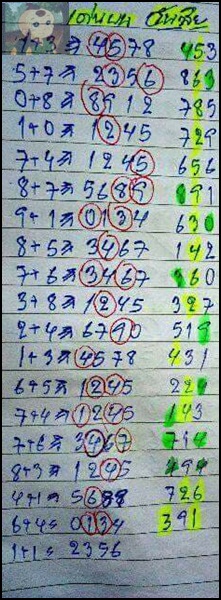 เด่นบน
4+3 = 4578 453
5+7 = 2356 863
0+8 = 8912 783
1+0 = 1245 729
7+4 = 1245 656
8+7 = 5689 891
9+1 = 0134 630
8+5 = 3467 142
7+6 = 3467 360
3+8 = 1245 327
2+4 = 6790 519
1+3 = 4578 431
6+5 = 1245 224
7+4 = 1245 143
7+6 = 3467 714
8+3 = 1245 494
4+1 = 5689 726
6+4 = 0134 391
1+1 = 2356